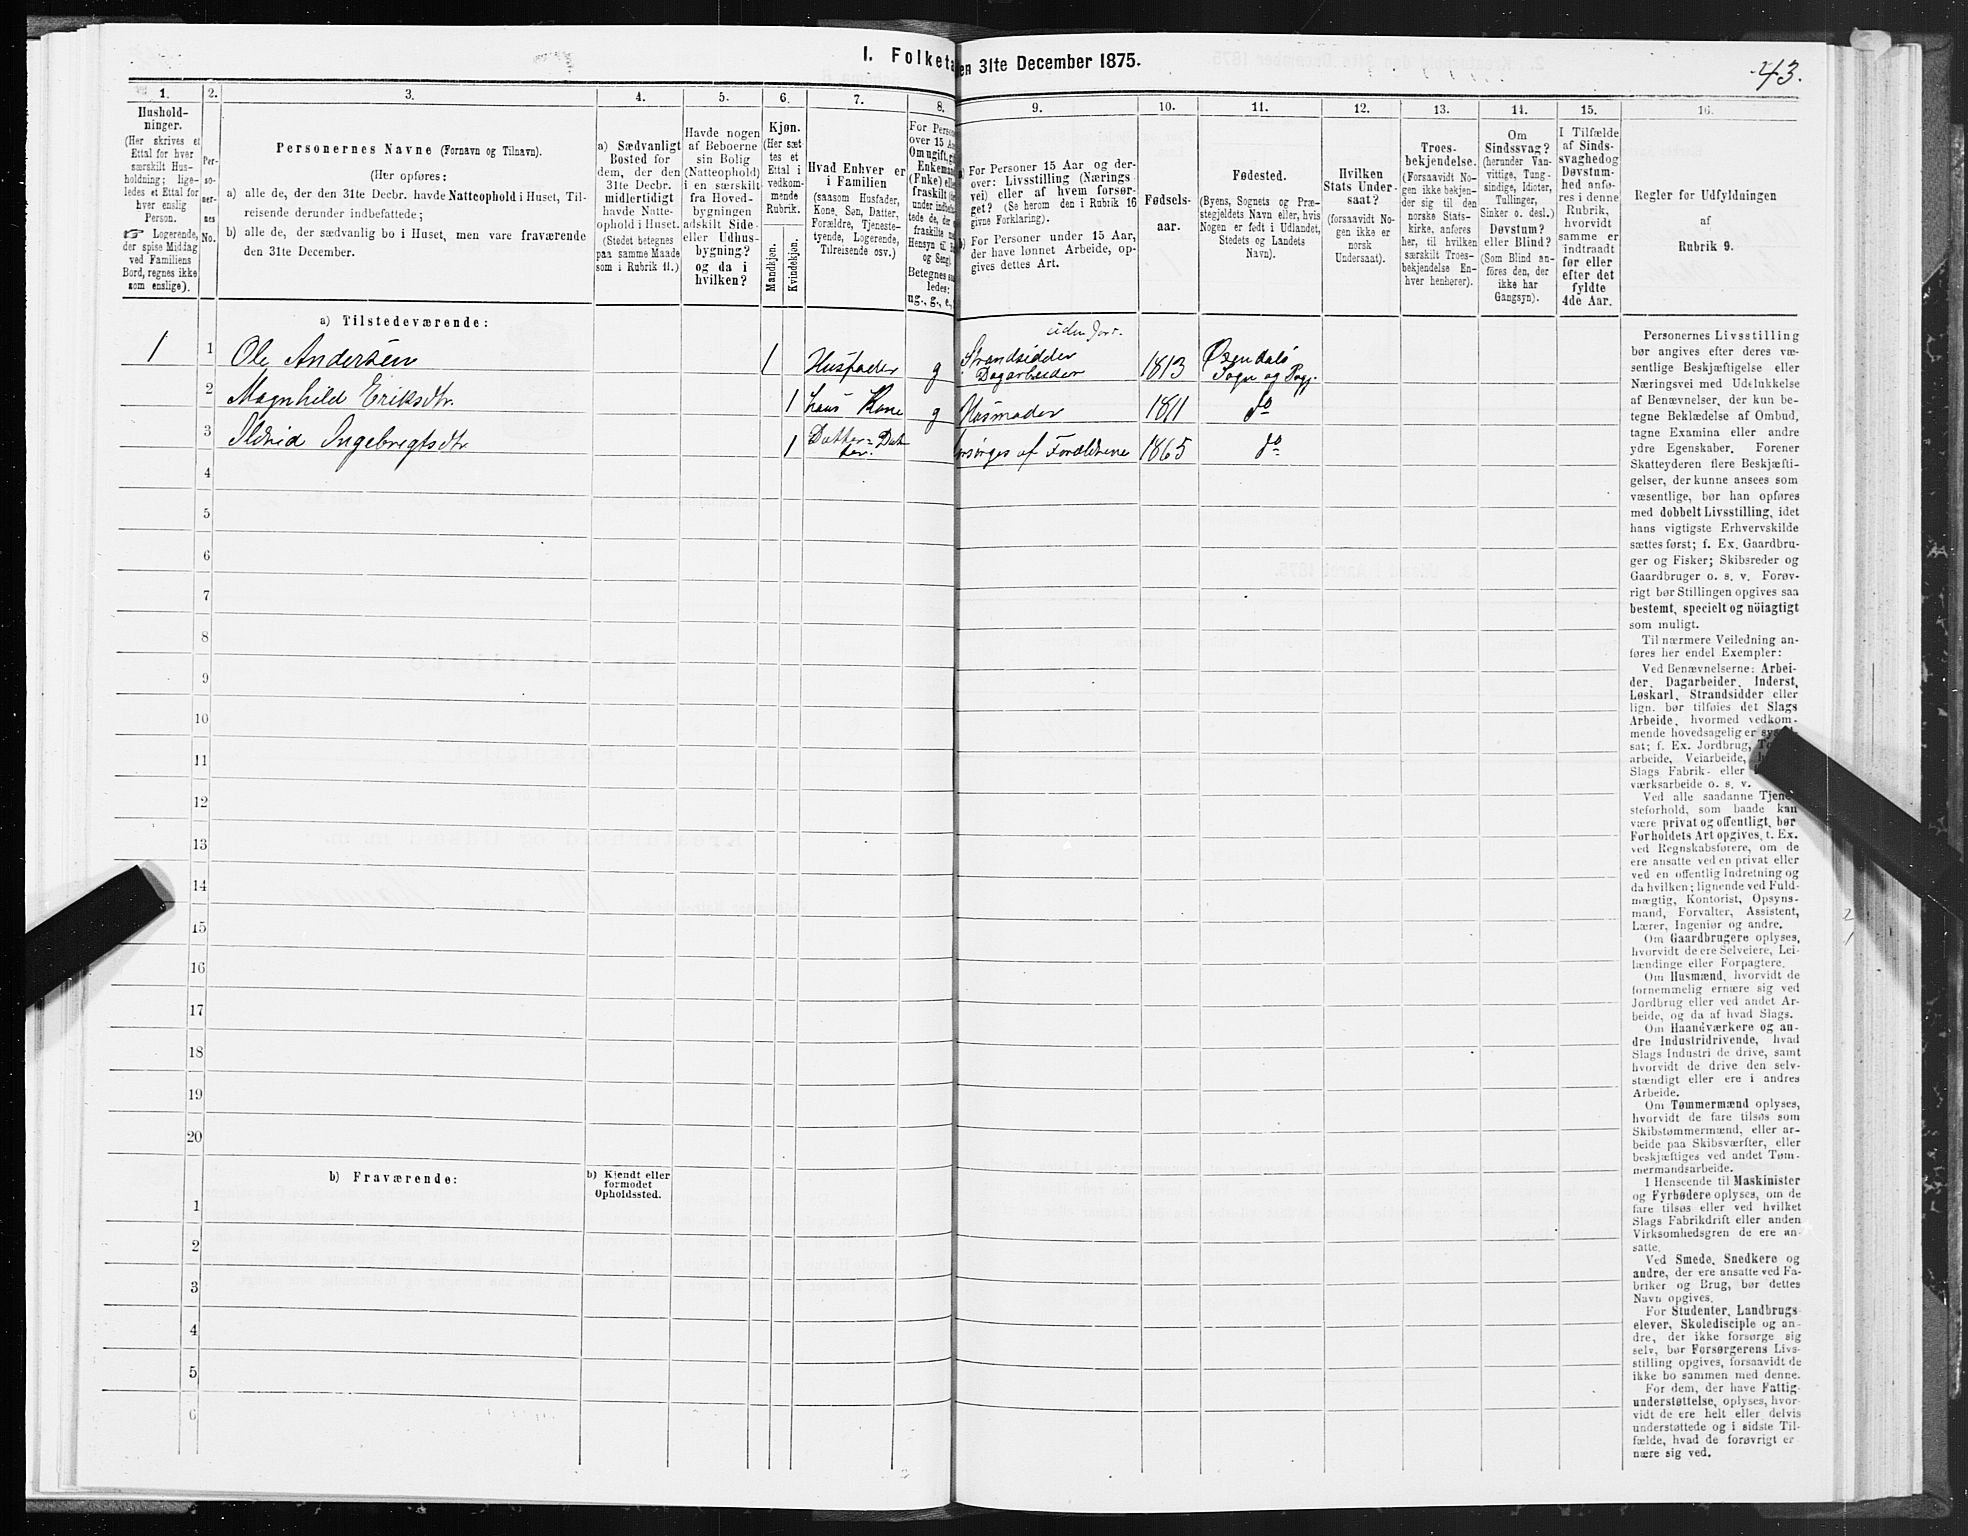 I. Folketa en 31te December 1875.
43.
1. 2. 3. 4. 5. 6. 7. 8. 9. 10. 11. 12. 13. 14. 15. 16.
Hushold-
ninger.
(Her skrives et
Ettal for hver
særskilt Hus-
holdning; lige-
ledes et Ettal for
hver enslig
Person.
☞ Logerende,
der spise Middag
ved Familiens
Bord, regnes ikke
som enslige).
Per-
so-
ner-
nes
No.
Personernes Navne (Fornavn og Tilnavn).
(Her opføres:
a) alle de, der den 31te Decbr. havde Natteophold i Huset, Til-
reisende derunder indbefattede;
b) alle de, der sædvanlig bo i Huset, men vare fraværende
den 31te December.
a) Sædvanligt
Bosted for
dem, der den
31te Decbr.
midlertidigt
havde Natte-
ophold i Huset.
(Stedet betegnes
paa samme Maade
som i Rubrik 11.)
Havde nogen
af Beboerne
sin Bolig
(Natteophold)
i en særskilt
fra Hoved-
bygningen
adskilt Side-
eller Udhus-
bygning?
og da i
hvilken?
Kjøn.
(Her sæt
tes et
Ettal i
vedkom-
mende
Rubrik.
Mandkjøn.
Kvindekjøn.
Hvad Enhver er
i Familien
(saasom Husfader,
Kone, Søn, Datter,
Forældre, Tjeneste-
tyende, Logerende,
Tilreisende osv.)
For Perso
over 15 Aa
Om ugift, gi
Enkeman
(Enke) elle
fraskilt
under indbefat
tede de, der
fraskilte
Hensyn til B
og Seng).
Betegnes saa
ledes:
ug., g., e.,
a) For Personer 15 Aar og der-
over: Livsstilling (Nærings-
vei) eller af hvem forsør-
get? (Se herom den i Rubrik 16
givne Forklaring).
b) For Personer under 15 Aar,
der have lønnet Arbeide, op-
gives dettes Art.
Fødsels-
aar.
Fødested.
(Byens, Sognets og Præ-
stegjeldets Navn eller, hvis
Nogen er født i Udlandet,
Stedets og Landets
Navn).
Hvilken
Stats Under-
saat?
(forsaavidt No-
gen ikke er
norsk
Undersaat).
Troes-
bekjendelse.
(Forsaavidt No-
gen ikke bekjen-
der sig til den
norske Stats-
kirke, anføres
her, til hvilken
særskilt Troes-
bekjendelse En-
hver henhører).
Om
Sindssvag?
(herunder Van-
vittige, Tung-
sindige, Idioter,
Tullinger,
Sinker o. desl.)
Døvstum?
eller Blind?
(Som Blind an-
føres den, der
ikke har
Gangsyn).
I Tilfælde
af Sinds-
svaghed og
Døvstum-
hed anfø-
res i denne
Rubrik,
hvorvidt
samme er
indtraadt
før eller
efter det
fyldte
4de Aar.
Regler for Udfyldningen
af
Rubrik 9.
a) Tilstedeværende:
uden Jord.
1 1 Ole Andersen 1 Husfader g Strandsidder
Dagarbeider 1813 Øxendals
Sogn og Pgj.
2 Magnhild Eriksdtr. 1 hans Kone g Husmoder 1811 do
3 Ildrid Ingebregtsdtr 1 Datter-Dat
ter. orsørges af Forældrene 1865 do
4
5
6
7
8
9
10
11
12
13
14
15
16
17
18
19
20
b) Fraværende:
b) Kjendt eller
formodet
Opholdssted.
1
2
3
4
5
6
Personernes Livsstilling
bør angives efter deres væ-
sentlige Beskjæftigelse eller
Næringsvei med Udelukkelse
af Benævnelser, der kun be-
tegne Beklædelse af Ombud,
tagne Examina eller andre
ydre Egenskaber. Forener
Skatteyderen flere Beskjæfti-
gelser, der kunne ansees som
væsentlige, bør han opføres
med dobbelt Livsstilling, idet
hans vigtigste Erhvervskilde
sættes først; f. Ex. Gaardbru-
ger og Fisker; Skibsreder og
Gaardbruger o. s. v. Forøv-
rigt bør Stillingen opgives saa
bestemt, specielt og nöiagtigt
som muligt.
Til nærmere Veiledning an-
føres her endel Exempler:
Ved Benævnelserne: Arbei-
der, Dagarbeider, Inderst,
Løskarl, Strandsidder eller
lign. bør tilføies det Slags
Arbeide, hvormed vedkom-
mende hovedsagelig er
sat; f. Ex. Jordbrug,
arbeide, Veiarbeide,
Slags Fabrik- eller
værksarbeide o. s. v.
Ved alle saadanne Tjene-
steforhold, som baade kan
være privat og offentligt, bør
Forholdets Art opgives, t. Ex.
ved Regnskabsførere, om de
ere ansatte ved en privat eller
ved en offentlig Indretning og
da hvilken; lignende ved Fuld-
mægtig, Kontorist, Opsyns-
mand, Forvalter, Assistent,
Lærer, Ingeniør og andre.
Om Gaardbrugere oplyses,
hvorvidt de ere Selveiere, Lei-
lændinge eller Forpagtere.
Om Husmænd, hvorvidt de
fornemmelig ernære sig ved
Jordbrug eller ved andet Ar-
beide, og da af hvad Slags.
Om Haandværkere og an-
dre Industridrivende, hvad
Slags Industri de drive, samt
hvorvidt de drive den selv-
stændigt eller ere i andres
Arbeide.
Om Tømmermænd oplyses,
hvorvidt de fare tilsøs som
Skibstømmermænd, eller ar-
beide paa Skibsværfter, eller
beskjæftiges ved andet Tøm-
mermandsarbeide.
I Henseende til Maskinister
og Fyrbødere oplyses, om de
fare tilsøs eller ved hvilket
Slags Fabrikdrift eller anden
Virksomhedsgren de ere an-
satte.
Ved Smede, Snedkere og
andre, der ere ansatte ved Fa-
briker og Brug, bør dettes
Navn opgives.
For Studenter, Landbrugs-
elever, Skoledisciple og an-
dre, der ikke forsørge sig
selv, bør Forsørgerens Livs-
stilling opgives, forsaavidt de
ikke bo sammen med denne.
For dem, der have Fattig-
understøttelse, oplyses, hvor-
vidt de ere helt eller delvis
understøttede og i sidste Til-
fælde, hvad de forøvrigt er-
nære sig ved.
2
1